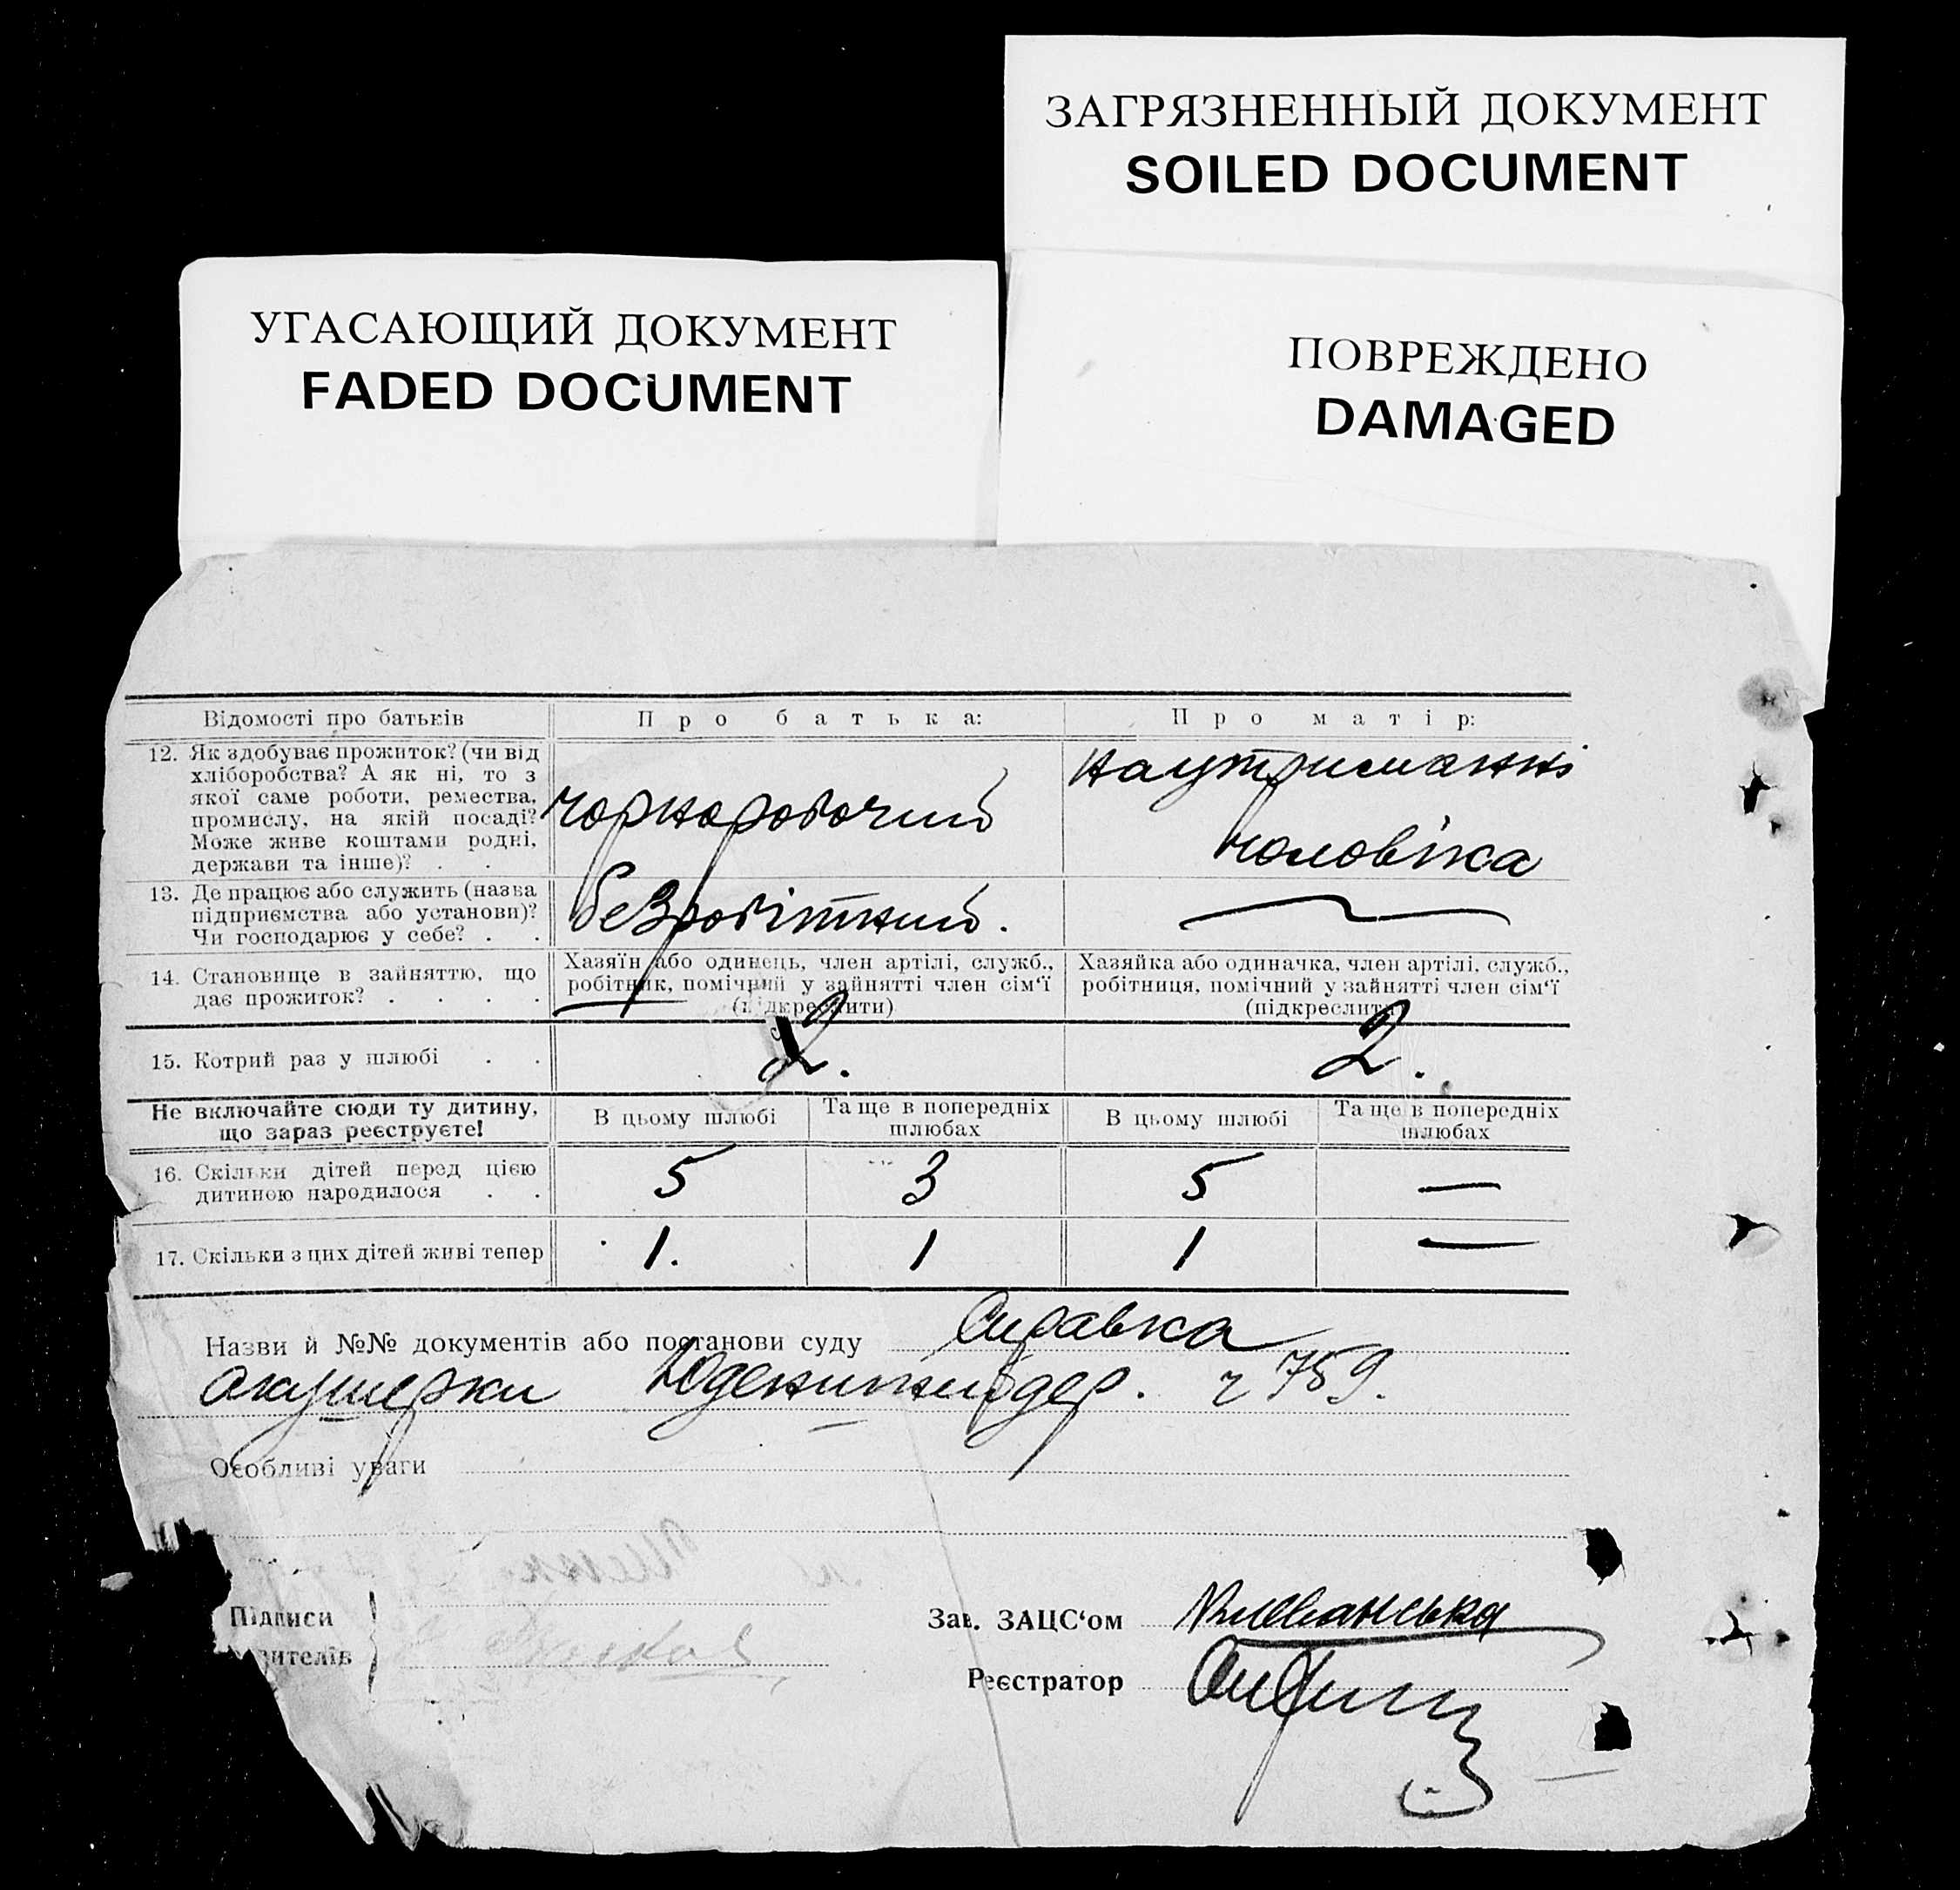 ЗАГРЯЗНЕННЫЙ ДОКУМЕНТ
SOILED DOCUMENT
УГАСАЮЩИЙ ДОКУМЕНТ
FADED DOCUMENT
ПОВРЕЖДЕНО
DAMAGED
Відомості про батьків
Про батька:
Про матір:
12. Як здобуває прожиток? (чи від
хліборобства? А як ні, то з
якої саме роботи, ремества,
промислу, на якій посаді?
Може живе коштами родні,
держави та інше)? . .
чорноробочий
на утриманні
чоловіка
13. Де працює або служить (назва
підприємства або установи)?
Чи господарює у себе? . .
безробітний.
14. Становище в зайняттю, що
дає прожиток? . . . .
Хазяїн або одинець, член артілі, служб.,
робітник, помічний у зайнятті член сім‘ї
(підкреслити)
Хазяйка або одиначка, член артілі, служб.,
робітниця, помічний у зайнятті член сім‘ї
(підкреслити)
15. Котрий раз у шлюбі . .
2.
2.
Не включайте сюди ту дитину,
що зараз реєструєте!
В цьому шлюбі
Та ще в попередніх
шлюбах
В цьому шлюбі
Та ще в попередніх
шлюбах
16. Скільки дітей перед цією
дитиною народилося . .
5
3
5
—
17. Скільки з цих дітей живі тепер
1.
1
1
—
Назви й №№ документів або постанови суду Справка
акушерки ч 759.
Особливі уваги
Підписи
Зав. ЗАЦС‘ом
Реєстратор